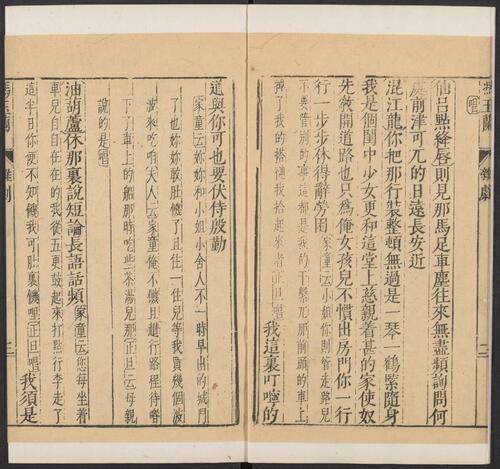 馮玉蘭 雜劇
唱
仙呂點絳唇則見那馬足車塵往來無盡頻詢問何
處前津可兀的日遠長安近
混江龍你把那行裝整頓無過是一琴一鶴緊隨身
我是個閨中少女更和這堂上慈親着甚的家使奴
先敎開道路也只爲俺女孩兒不慣出房門你一行
行一步步休得辭勞困 家童云小姐你則管走路兒
不要管別的事這都是我的干繫兀那前頭的車上
掉了我的搭褳我拾起來者正旦唱 我這裏叮嚀的
道與你可也要伏侍殷勤
家童云妳妳和小姐小舍人不一時早出的城門
了也妳妳敎肚饑了且住一住兒等我買幾個波
波來吃咱夫人云家童俺不饑且趲行路程待
下了車上的船那時吃些茶湯兒那正旦云母親
說的是唱
油葫蘆休那裏說短論長語話頻 家童云您每坐着
車兒自自在在的我從五更鼓起來打點行李走了
這半日你便不知饑我可肚裏饑哩正旦唱 我須是
馮玉蘭 雜劇 三